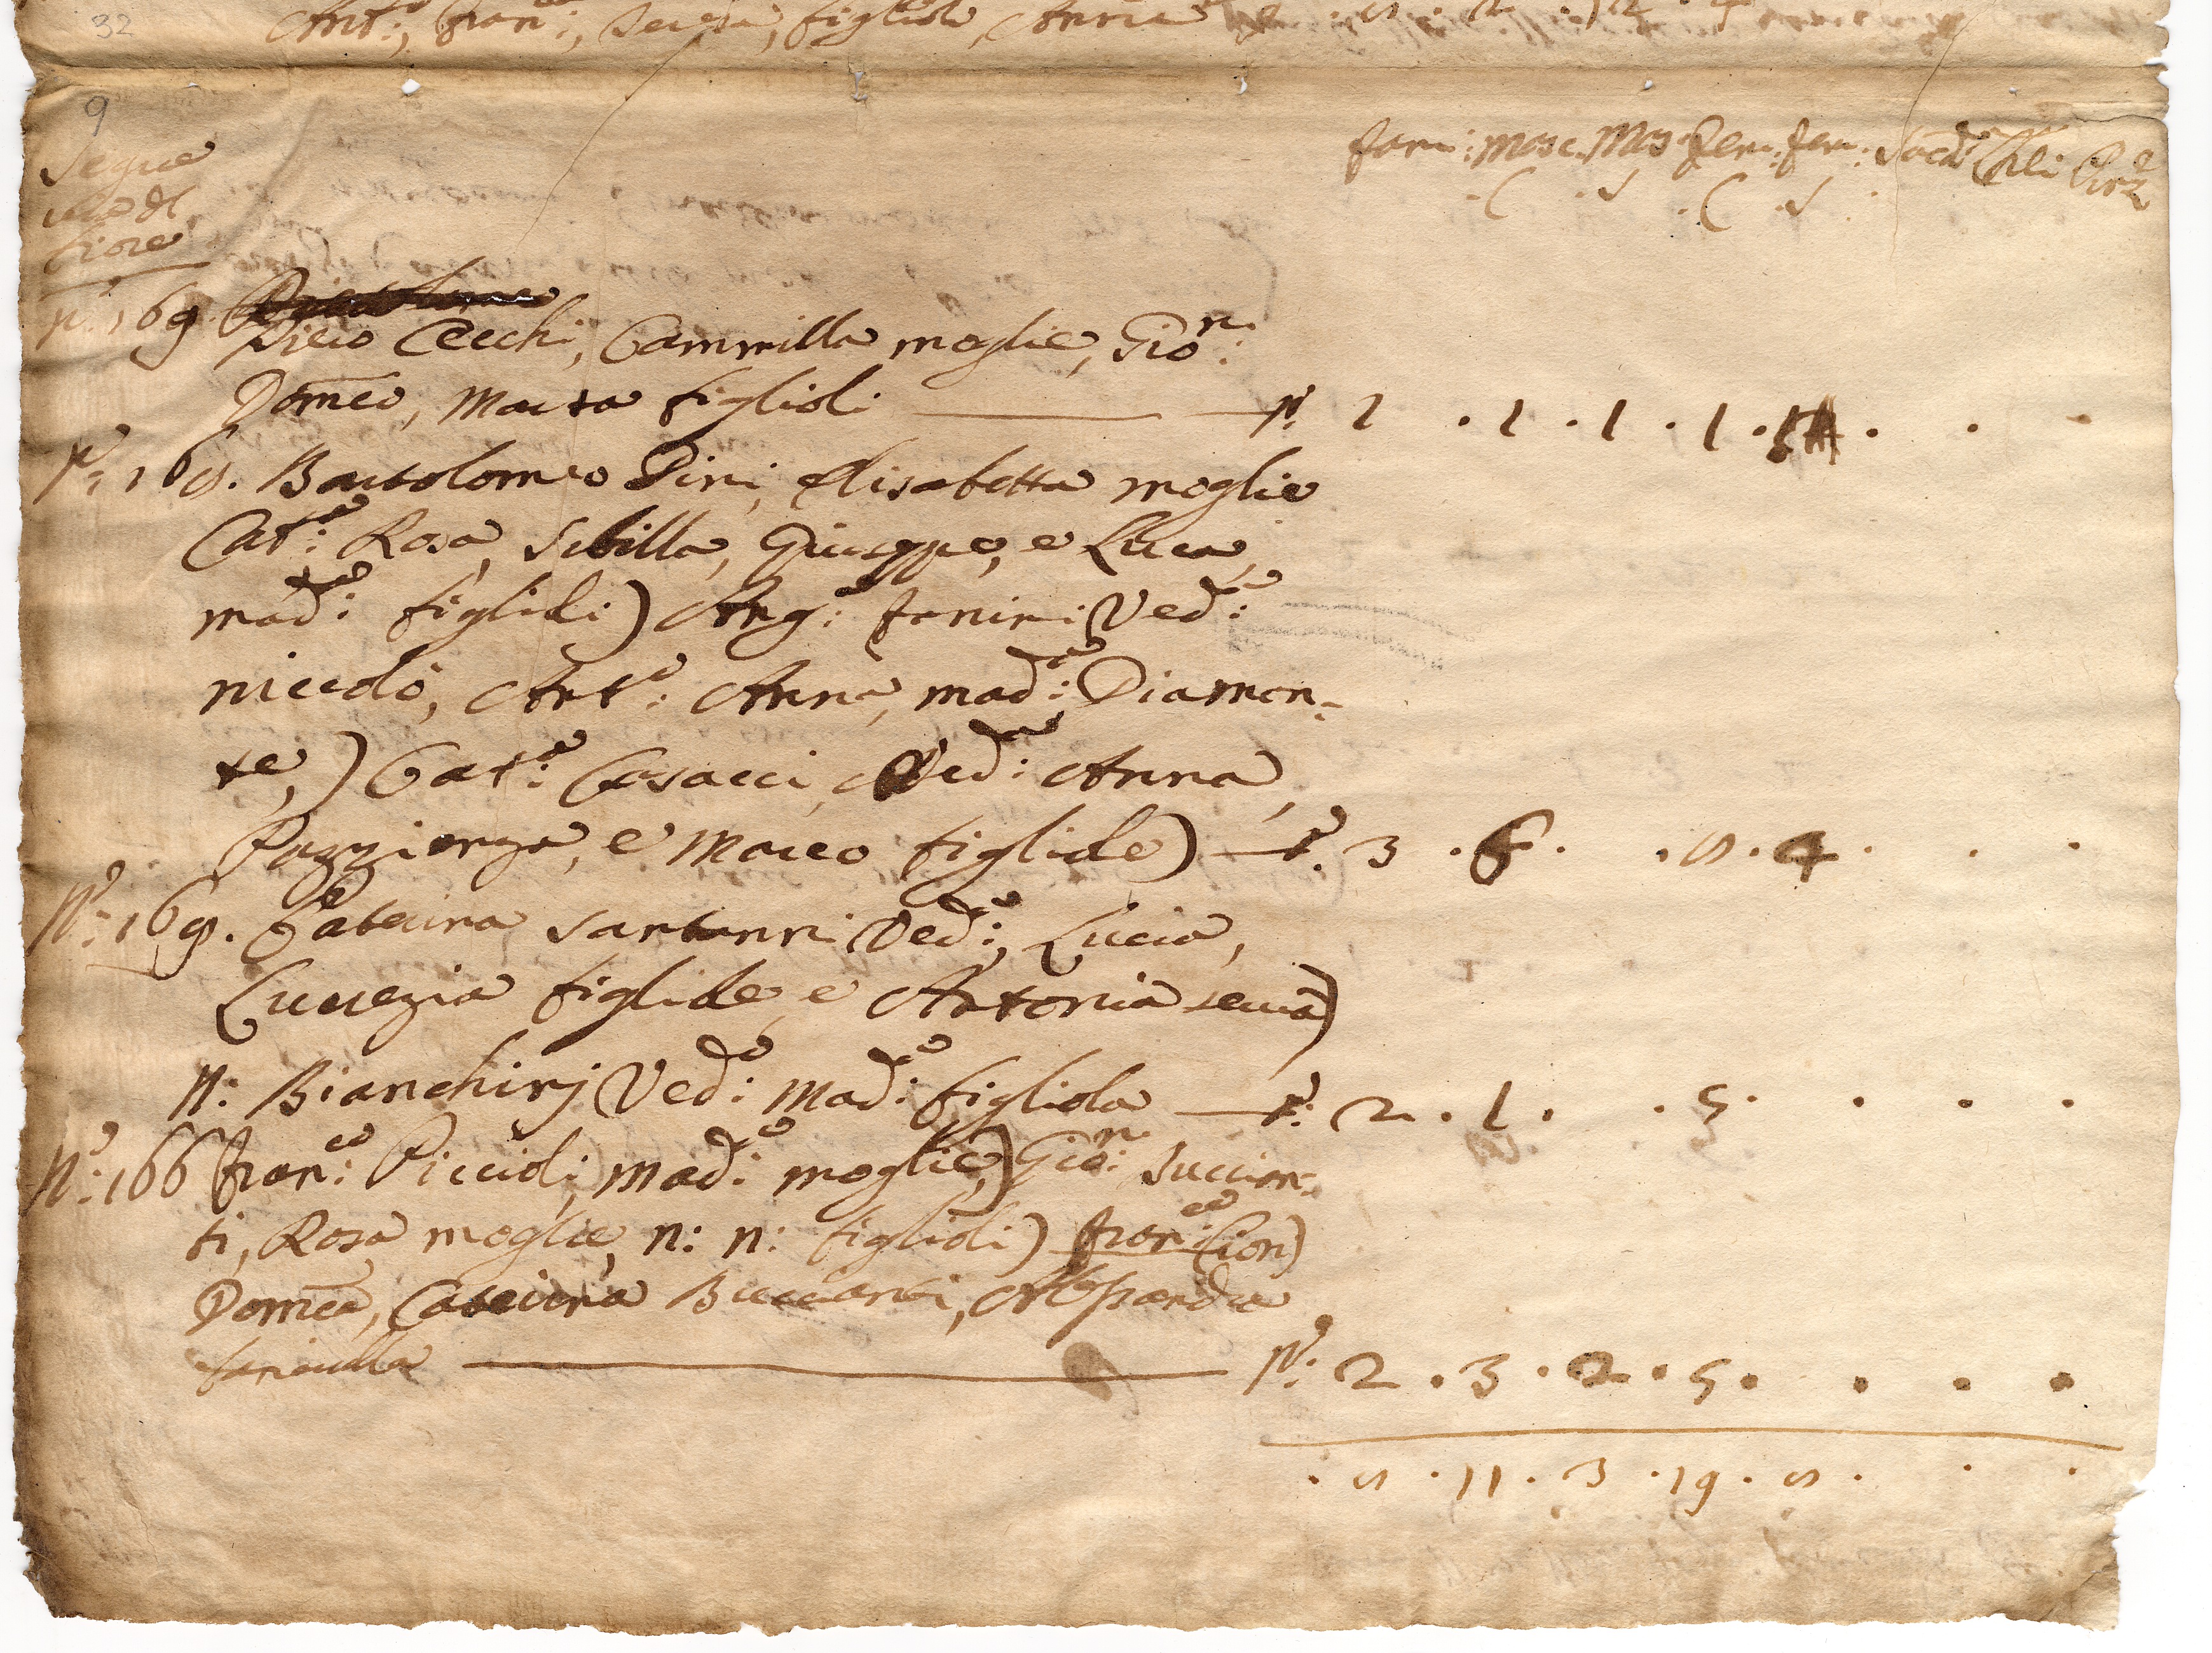 32
Ant:º, Fran:co, Teresa, figlioli, Anna
9
Segue
via dl
fiore
Fam: Masc. Mas Fem: Fem: Sacer Chi:
.C .S .C .S
Nº: 169
Pieio Cecchi, Cammilla moglie, Gio:n
Domco, Marta figlioli Nº: 1 . 1 . 1 . 1 . . .
Nº: 168. Bartolomeo Pini, Elisabetta moglie
Cat:a Rosa, Sibilla, Giuseppe, e Luca,
mad:a figlioli) Ang:a Fanini Ved:a
niccolò, Ant:º Anna, mad:a Diaman=
te,) Cat:a Casacci, Ved:a Anna,
Pazzienza, e Marco figliole) Nº: 3 . 6 . . 8 . 4 . . .
Nº: 169. Caterina Santanni Ved:a, Lucia,
Lucrezia figliole, e Antonia serua)
N: Bianchinj Ved:a Mad:a figliola Nº: 2 . 1 . . 5 . . . .
Nº: 166 Fran:co Piccioli, mad:a moglie,) Gio:n Succian=
ti, Rosa moglie, n: n: figlioli) Fran:co Cion)
Domca, Caterina Bucciardi, Alesandra
fanciulla Nº: 2 . 3 . 2 . 5 . . . .
. 8 . 11 . 3 . 19 . 8 . . .